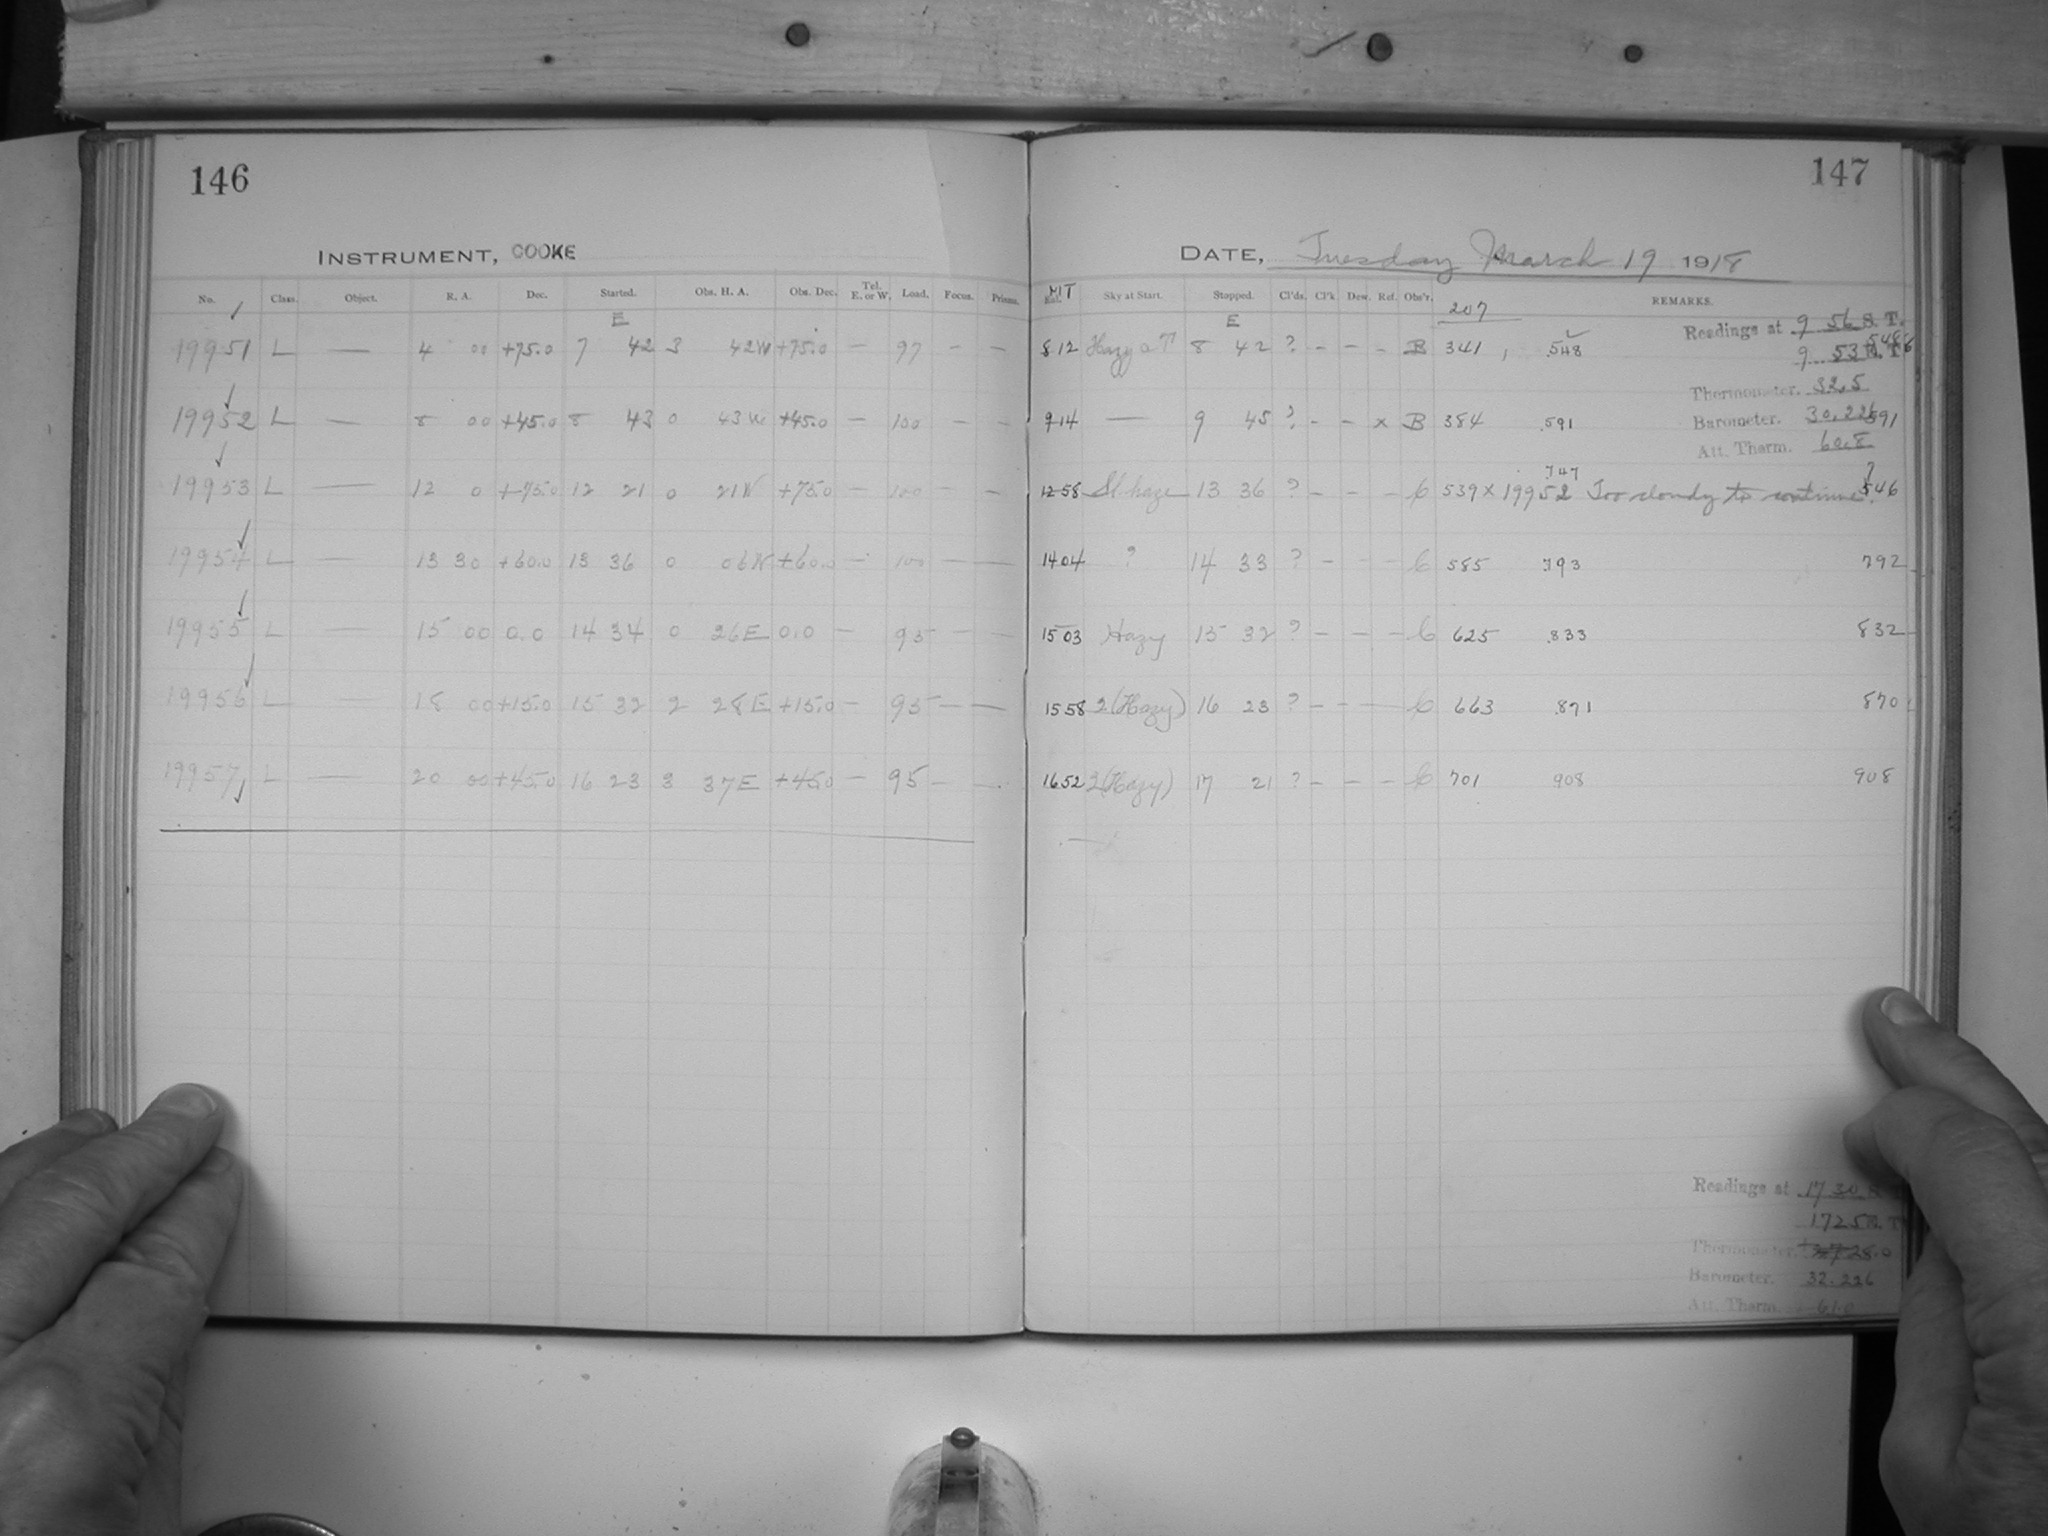 146
INSTRUMENT, COOKE
No. Class. Object. R. A. Dec. Started. Obs. H. A. Obs. Dec. Tel. E. or W. Load. Focus. Prisms.
E
19951 L — 4 00 +75.0 7 42 3 42W +75.0 — 97 — —
19952 L — 8 00 +45.0 8 43 0 43W +45.0 — 100 — —
19953 L — 12 0 +75.0 12 21 0 21W +75.0 — 100 — —
19954 L — 13 30 +60.0 13 36 0 06W +60.0 — 100 — —
19955 L — 15 00 0.0 14 34 0 26E 0.0 — 95 — —
19956 L — 18 00 +15.0 15 32 2 28E +15.0 — 95 — —
19957 L — 20 00 +45.0 16 23 3 37E +45.0 — 95 — —
147
DATE, Tuesday March 19 1918
MT Sky at Start. Stopped. Cl'ds. Cl'k Dew. Ref. Obs'r. REMARKS.
E 207
Readings at 9 56 S. T.
8 12 Hazy a T 8 42 ? - - - B 341 , .548
9 53
Thermometer. 32.5
9 14 — 9 45 ? - - x B 384 .591 591
Barometer. 30.226
Att. Therm. 60.8
747 ?
12 58 Sl. haze 13 36 ? - - - C 539 x 19952 Too cloudy to continue. 546
14 04 ? 14 33 ? - - - C 585 793 792
15 03 Hazy 15 32 ? - - - C 625 .833 832
15 58 2(Hazy) 16 23 ? - - - C 663 .871 870
16 52 2(Hazy) 17 21 ? - - - C 701 908 908
Readings at 17 30
17 25
Thermometer. 28.0
Barometer. 32.226
Att. Therm. 61.0